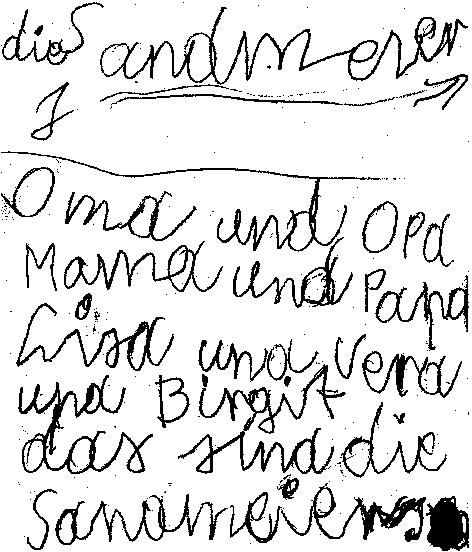 die Sandmeierer
1
Oma und Opa
Mama und Papa
Lisa und Vera
und Birgit
das sind die
Sandmeiers